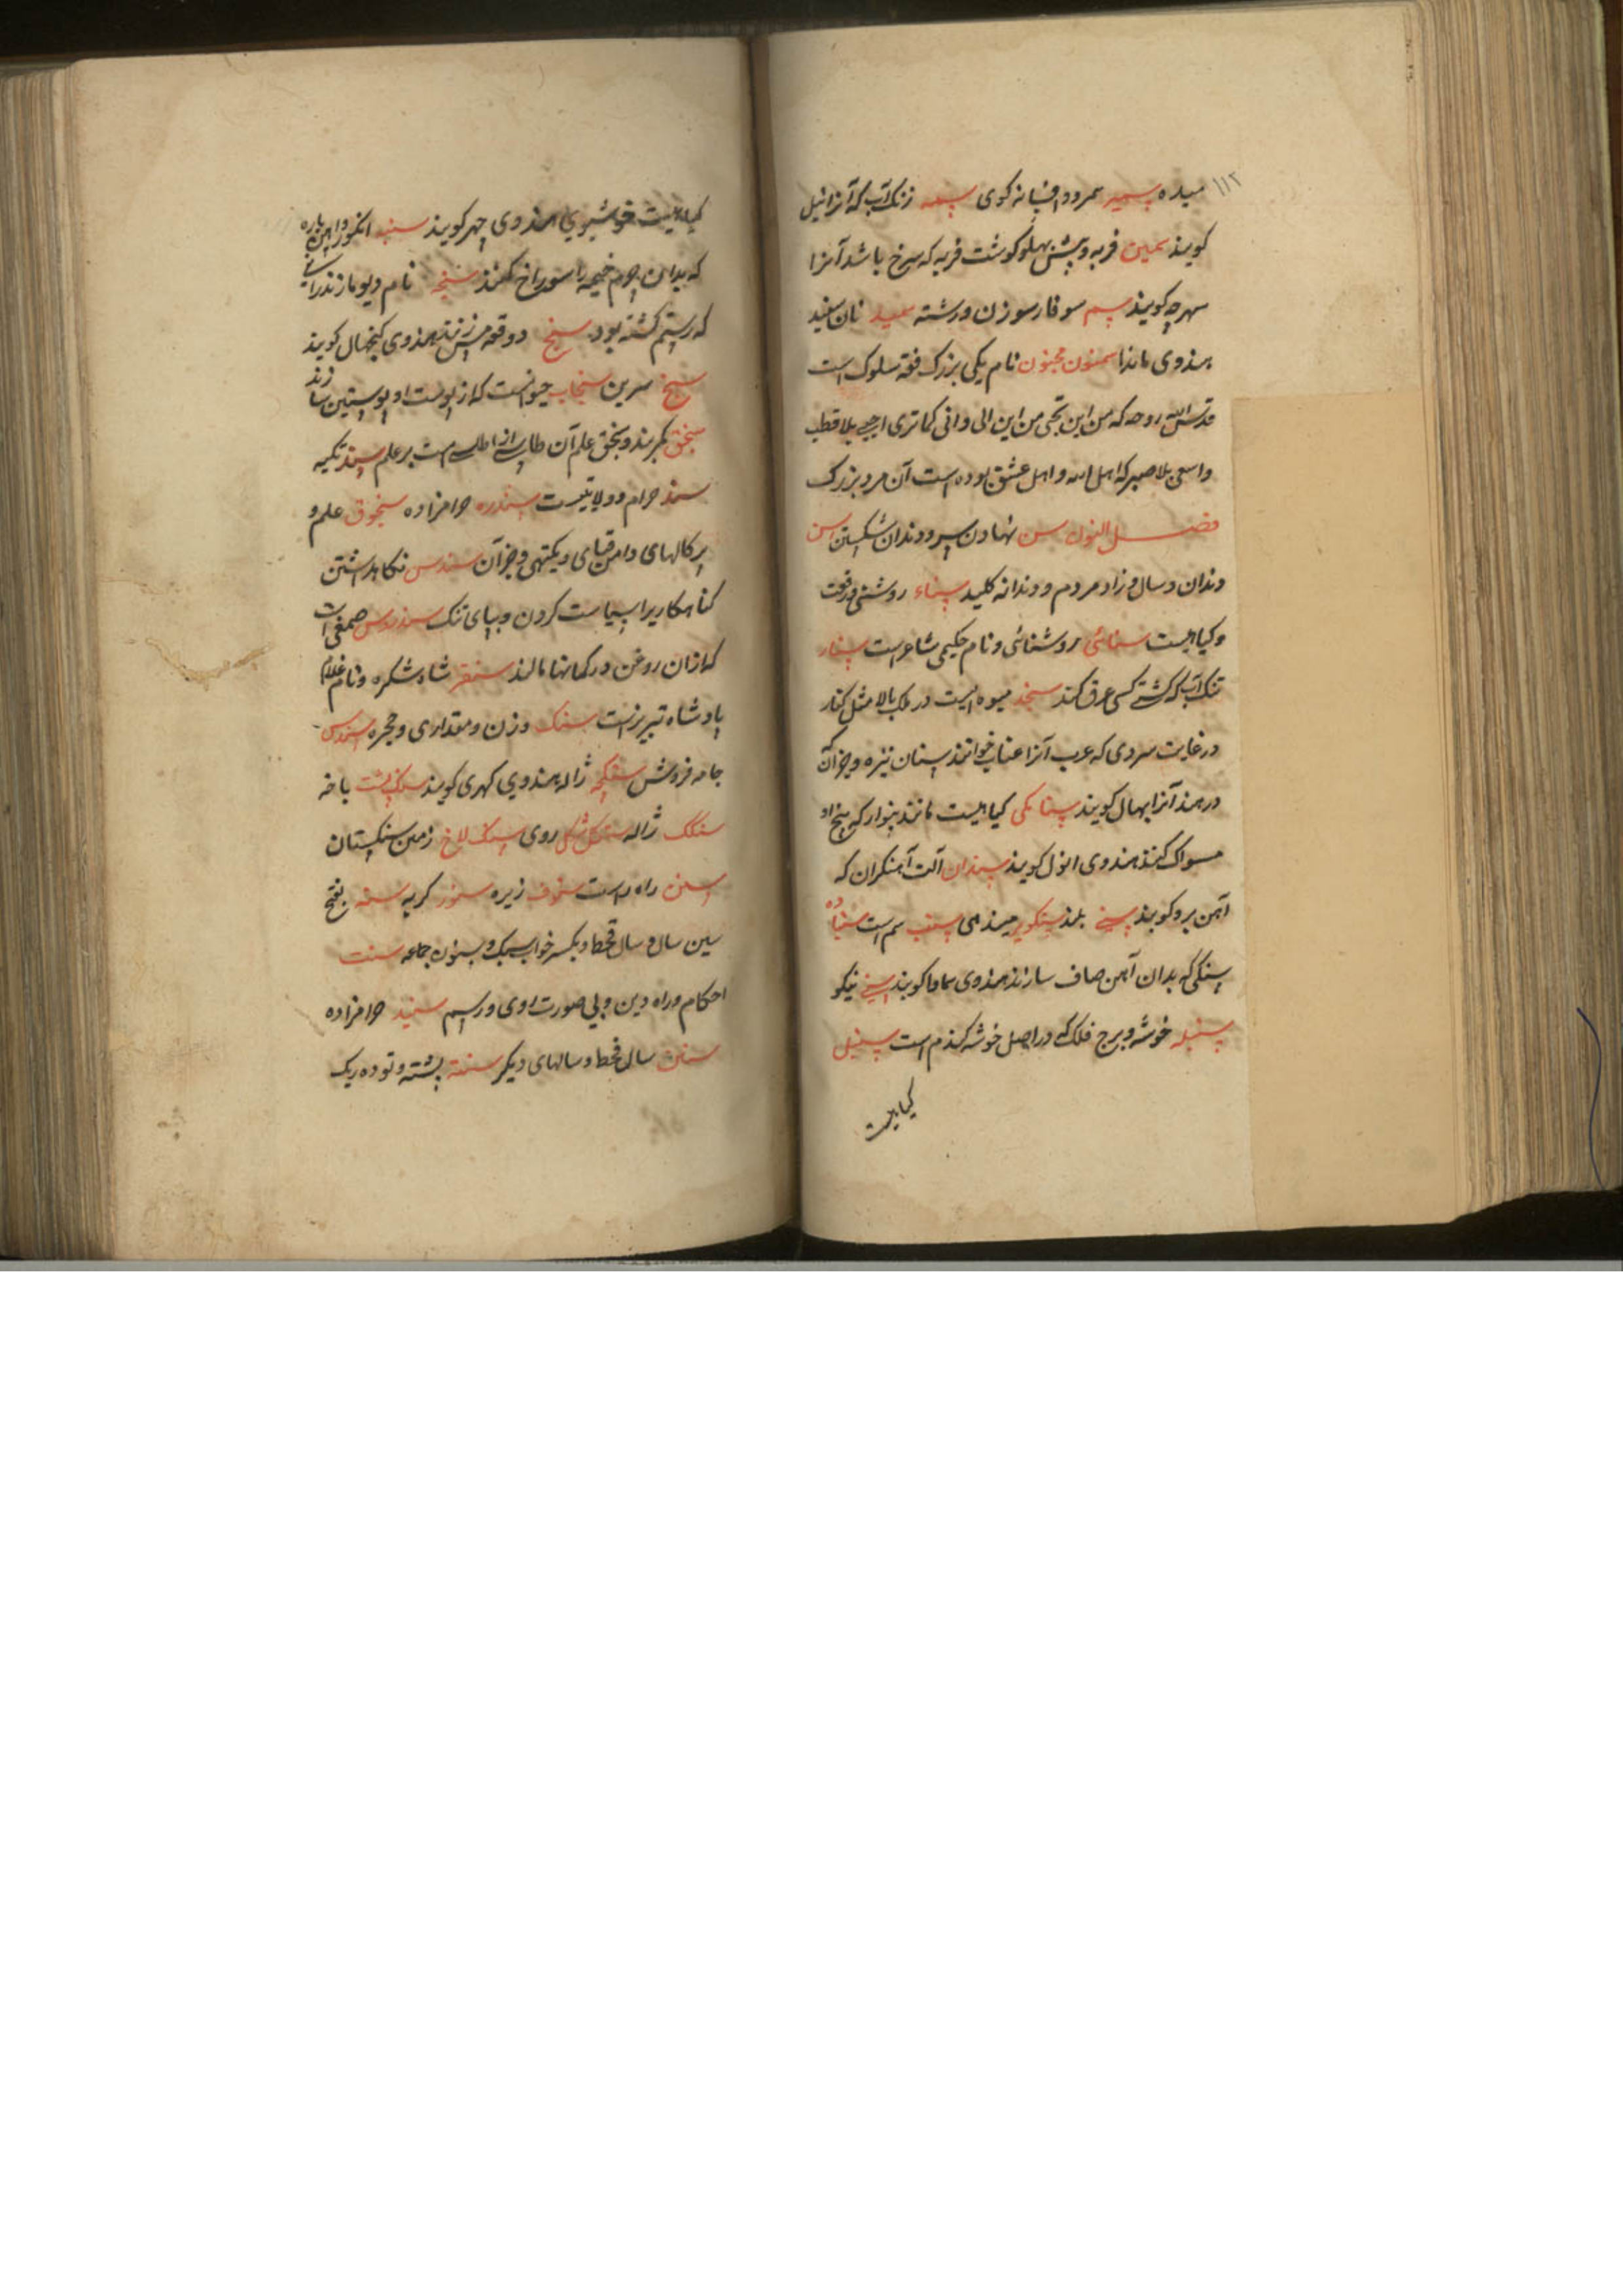 ۱۱۲
میده سمیر سمر و افسانه کوی سمه زنک آب که آنرا نیل
کویند سمین فربه و پیش پهلو کوشت فربه که سرخ باشد آنرا
سهرجه کویند سم سوفار سوزن و رشته سمید نان سفید
بهندوی ماندا سمنون مجنون نام یکی بزرک فقه سلوک است
قدس الله روحه که من این تجی من این الی وانی کما تری
واسعی بلا صبر که اهل الله و اهل عشق بوده است آن مرد بزرک
فصل النون سن نهادن سپر و دندان شکستن سن
دندان و سال و زاد مردم و دندانه کلید سناء روشنی و رفعت
و کیاهیست سنائی روشنائی و نام حکیمی شاعر است سنار
تنک آب که کشتی کسی غرق کند سنجد میوه ایست در ملک بالا مثل کنار
در غایت سردی که عرب آنرا عناب خوانند سنان نیزه و جز آن که
در هند آنرا بهال کویند سنا مکی کیاهیست مانند پنوار که بیخ او
مسواک کنند هندوی انول کویند سندان آلت آهنکران که
آهن برو کوبند سنی بلند سم است سنباده
سنکی که بدان آهن صاف سازند هندوی ساما کویند سنی نیکو
سنبله خوشه و برج فلک که در اصل خوشه کندم است سنبل
کیاهیست
کیاهیست خوشبوی هندوی چهر کویند سنبه انکور و آهن پاره
که بدان چرم خیمه را سوراخ کنند سنجه نام دیو مازندرانی
که رستم کشته بود سنج دو قعه مس زنند هندوی کنجهال کویند
سنج سرین سنجاب حیوانست که از پوست او پوستین سازند
سنجق کمربند و سنجق علم آن طاسی از اطلس است بر علم سند تکیه
سند حرام و ولایتیست سندره حرامزاده سنجوق علم و
پرکالهای دامن قبای و یکتهی و جز آن سندس نکاهداشتن
کناهکار برا سیاست کردن و دیبای تنک سندروس صمغی است
که ازان روغن در کمانها مالند سنقر شاه شکره و نام غلام
پادشاه تبریزست سنک وزن و مقداری و حجره سندس
جامه فروش سنکچه ژاله هندوی کهری کویند سنک پشت باخه
سنکک ژاله سنکل شکل روی سنک لاخ زمین سنکستان
سنن راه راست سنوف زیره سنور کربه سنه بفتح
سین سال و سال قحط و بکسر خواب سبک و سنون جماعه سنت
احکام و راه دین و پی صورت روی و رسم سنید حرامزاده
سنین سال قحط و سالهای دیکر سننه پشته و توده ریک